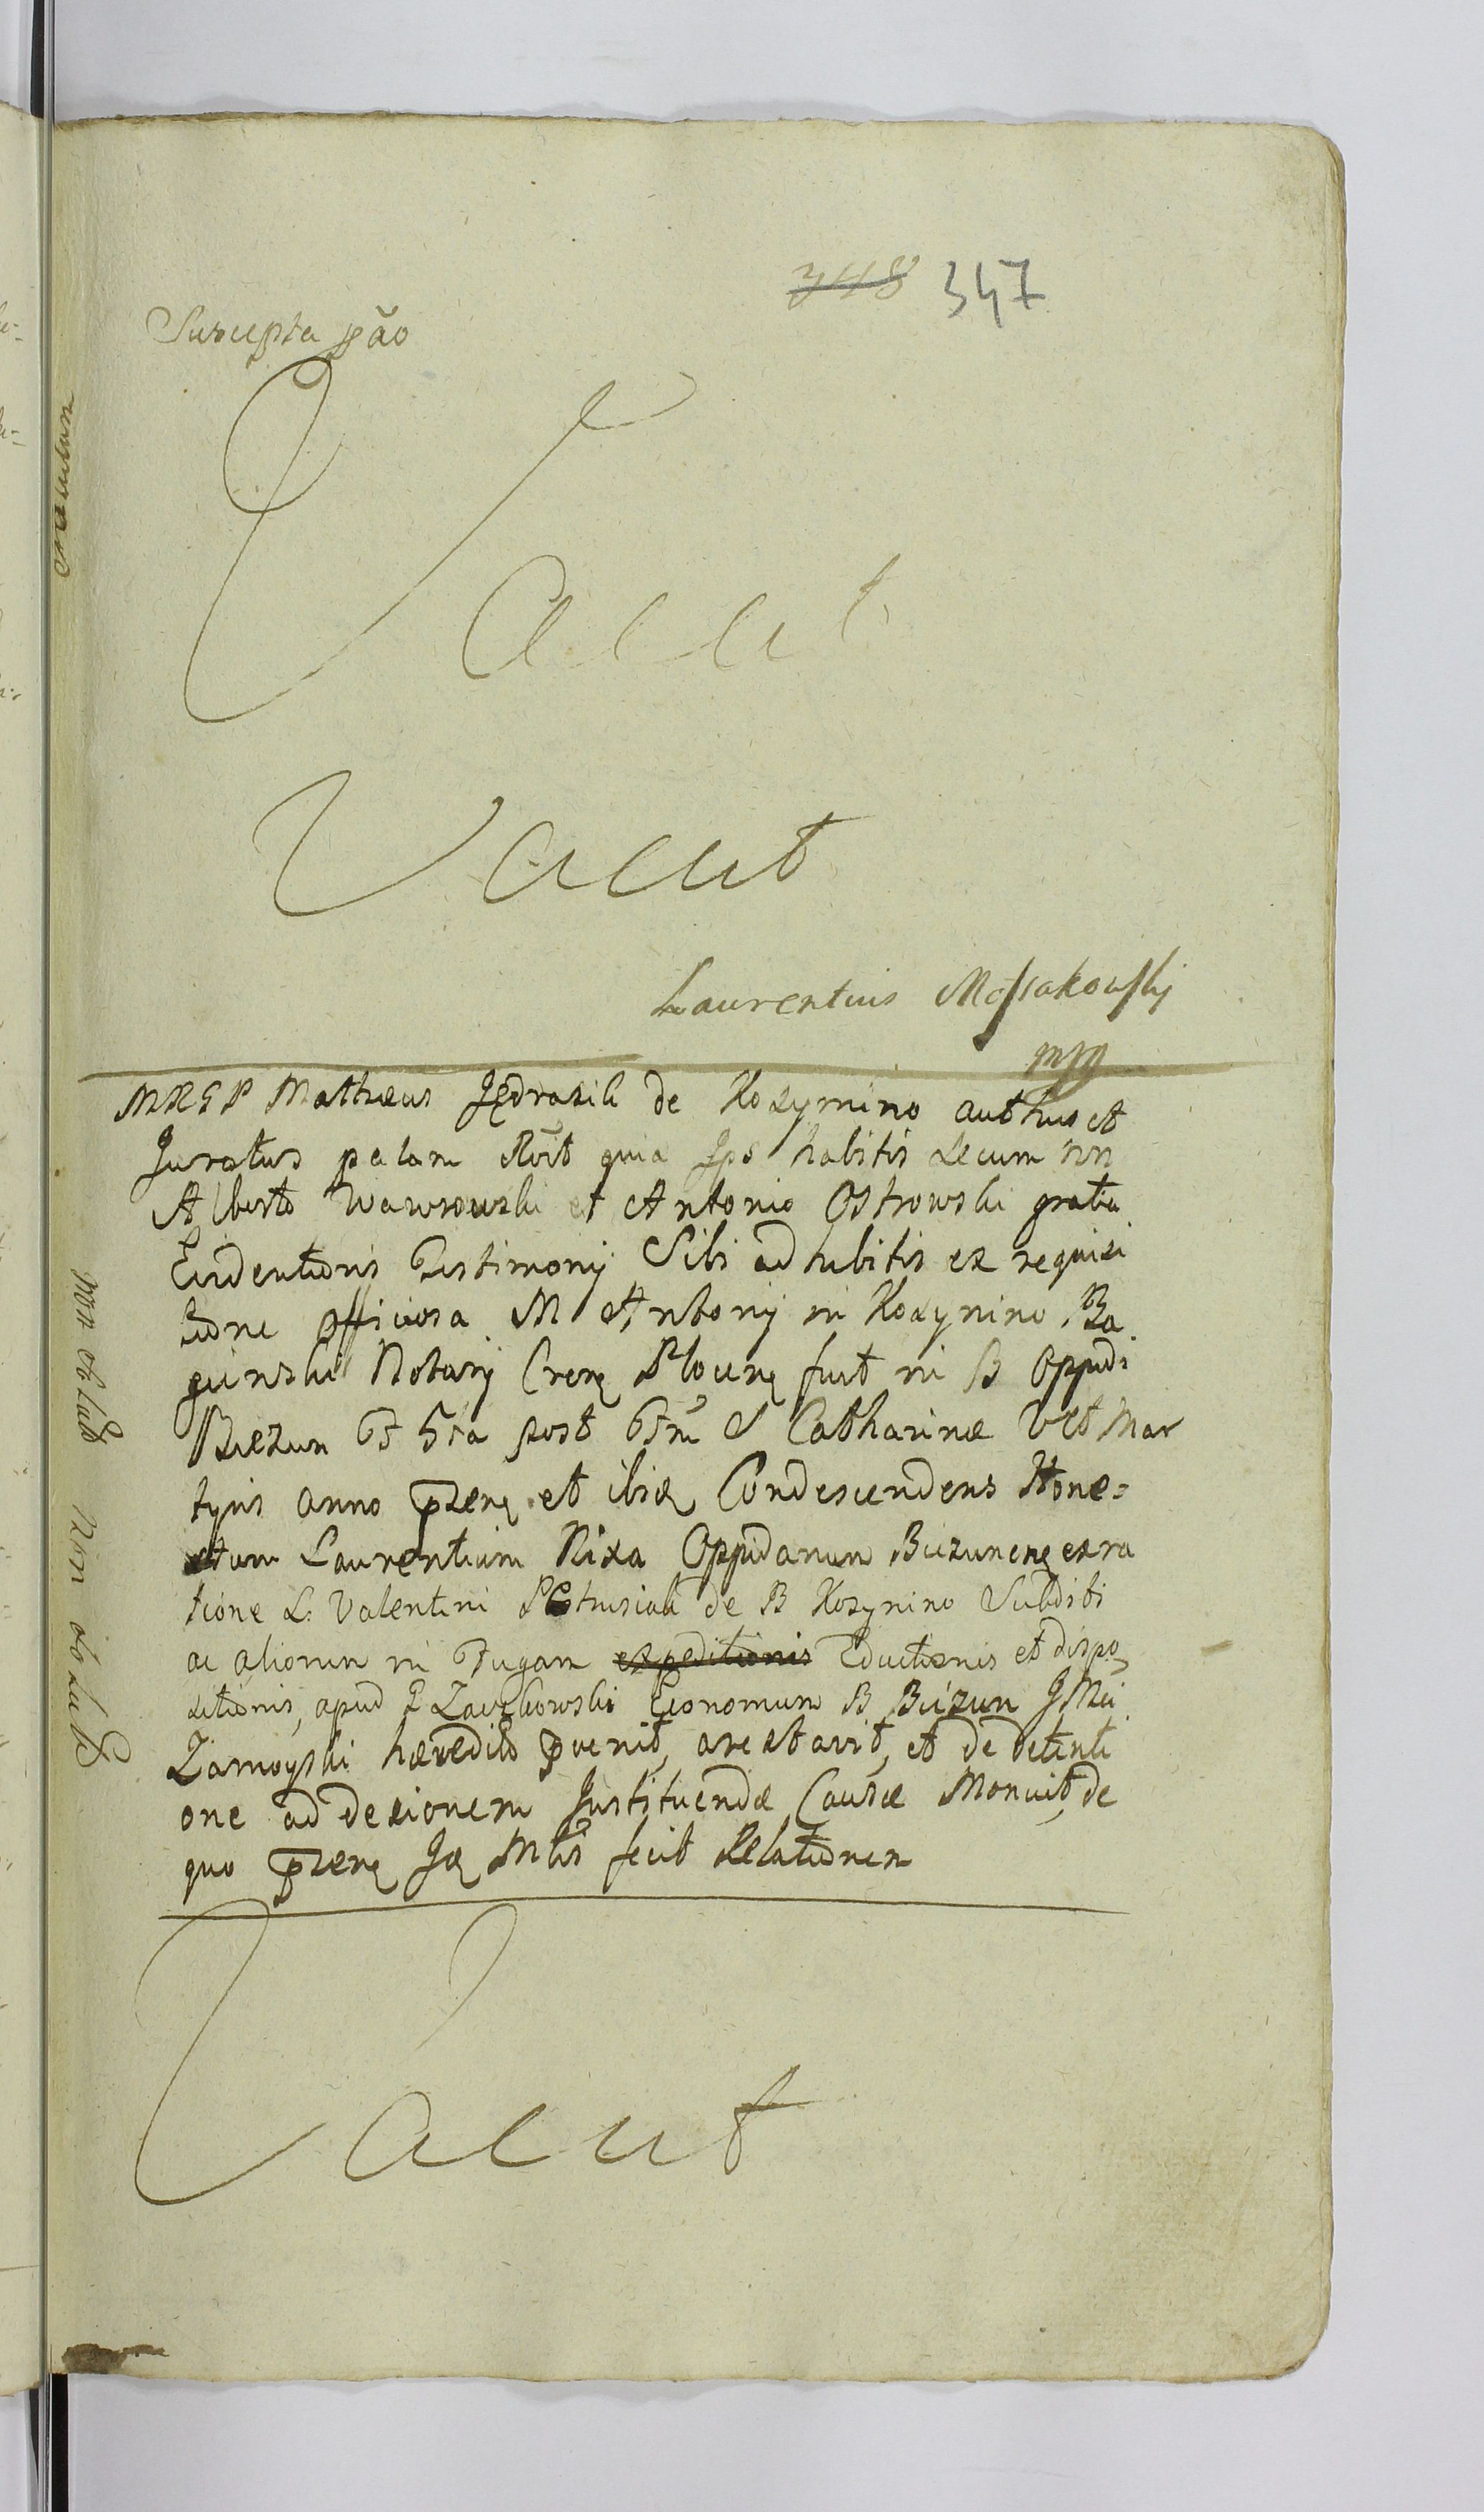 347
Suscepta pão
Vacat
Vacat
Laurentius Mossakowskj
mpp
MRGP Mattheus Jędrasik de Kozymino authus et
Juratus palam rõit quia Ips habitis secum nn
Alberto Wawrowski et Antonio Ostrowski gratia
Evidentioris Testimonij Sibi adhibitis ex requisi
tione officiosa M Antonij in Kozynino Ba
ginski Notarij Crenẹ Plocenẹ fuit in B Oppidi
Biezun fr 5ta post ftm S Catharinæ V et Mar
tyris anno pzenẹ et ibiq Condescendens Hone=
stum Laurentium Rixa Oppidanum Biezunenẹ ex ra
tione L. Valentini Petrusiak de B Kozynino Subditi
ac aliorum in Fugam expeditionis Eductionis et dispo
sitionis, apud G Zawkowski Economum B Biezun JMci
Zamoyski hæredito pvenit, arestavit, et de detenti
one ad decisionem Instituendæ Causæ Monuit, de
quo pzenẹ Jq Mtis fecit Relationem
Vacat
non oblat
Non oblat